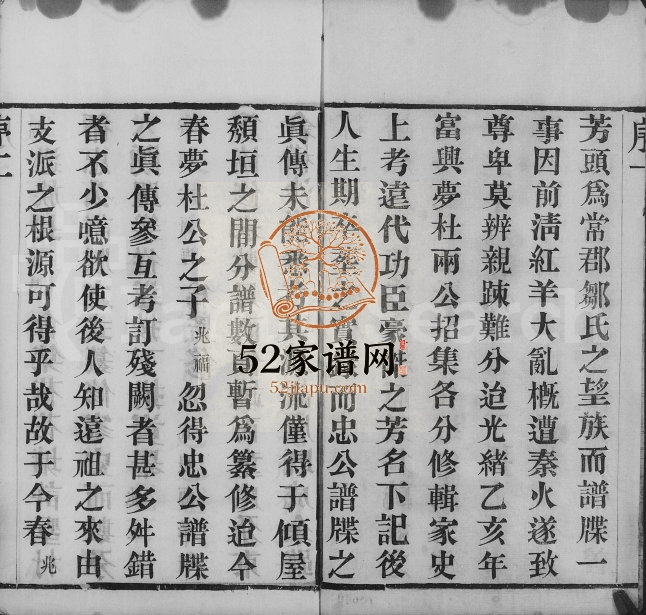 序一
芳頭爲常郡鄒氏之望族而譜牒一
事因前淸紅羊大亂槪遭秦火遂致
尊卑莫辨親踈難分迨光緖乙亥年
富興夢杜兩公招集各分修輯家史
上考遠代功臣豪之芳名下記後
人生期卒而忠公譜牒之
眞傳未能其流僅得于傾屋
頹垣之間分譜數暫爲纂修迨今
春夢杜公之子兆福忽得忠公譜牒
之眞傳參互考訂殘闕者甚多舛錯
者不少噫欲使後人知遠祖之來由
支派之根源可得乎哉故于今春兆
序二
52家谱网
52jiapu.com